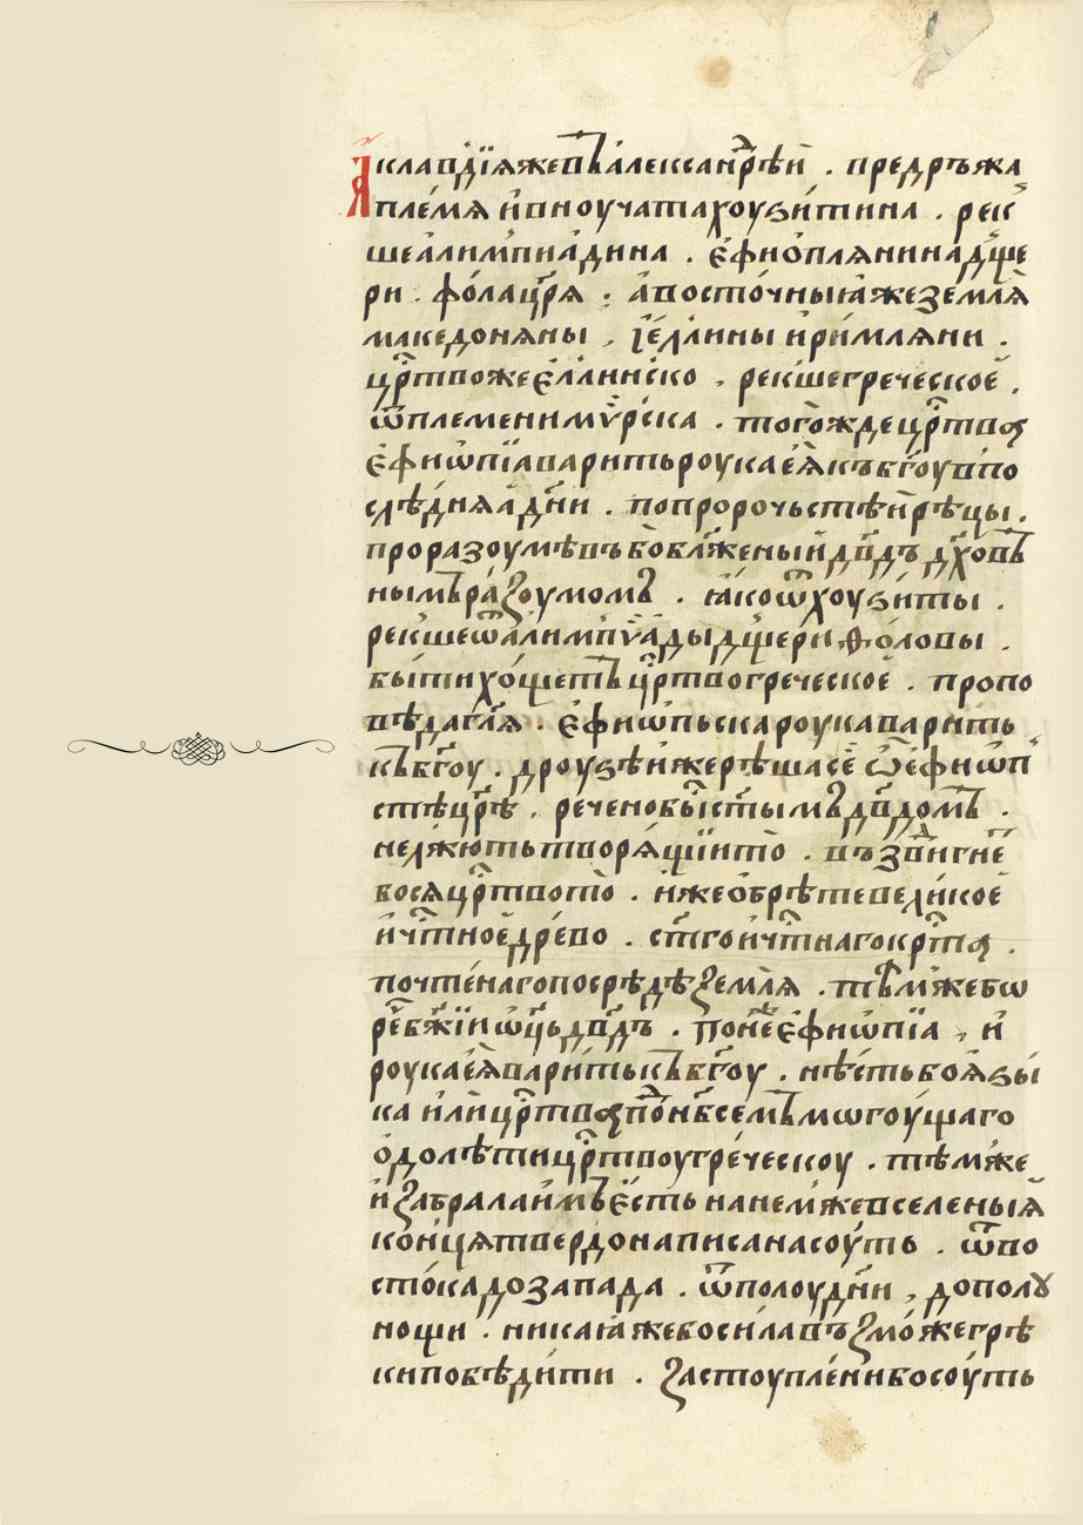 Ꙗ҆клаvді́ѧжевъа҆леѯанⷣрѣи . предръжа
племѧ и҆вноучатахоуѕи́тина . рекъ
шеа҆лимпиа҆дина . е҆фио҆плѧнинадще
ри . фо́лацр҃ѧ . а҆восто́чныꙗ҆жеземлѧ
македонѧны , і҆е҆ллины и҆ри́млѧни .
црⷭ҇твожее҆ллинско , рекшегреческое҆ .
ѿплеменимѵ́рска . того́ждецрⷭ҇тва
е҆фиѡ҆пїаваритьроукае҆ѧ҆къбг҃оувпо
слѣ́днѧꙗдн҃и . попророчьствѣи҆рѣцы .
проразоумѣвъбоблаже́ныи҆дв҃дъ дх҃овъ
нымъра́ꙁоумомъ . ꙗ҆коѿхоуѕиты .
рекшеѿа҆лимпѵ́а҆дыдщериѳ҆о́ловы .
бы́тихо́щетьцрⷭ҇твогреческое҆ . пропо
вѣдагл҃ѧ . е҆фиѡ҆пьскароукаварить
къбг҃оу . дроуѕѣи҆жерѣшасе҆ ѡ҆е҆фиѡ҆п
стѣцр҃ѣ . реченобы́стⷭ҇ымъдв҃домъ .
нелжютьтворѧ́щїито̀ . въздвигне
босѧцрⷭ҇твото̀ . и҆жео҆брѣтевели́кое҆
и҆чтⷭ҇ное҆дре́во . ст҃гои҆чтⷭ҇нагокрⷭ҇та .
почте́нагопосредѣꙁемлѧ̀ . тѣмжебѡ
рече́бж҃їиѡ҆ц҃ьдв҃дъ . поне́жее҆фиѡ҆пїа , и҆
роукае҆ѧ҆вари́тькъбг҃оу . нѣ́стьбоꙗ҆ѕы
ка и҆лѝцрⷭ҇твапⷪ҇нб҃семъмѡгоу́щаго
о҆долѣтицрⷭ҇твоугре́ческоу . тѣмже
и҆ꙁабралаи҆мъе҆стьнанемжевселеныꙗ
ко́нцѧтвердонаписанасоу́ть . ѿво
сто́кадозапада . ѿполоудн҃и , дополꙋ
нощи . никаꙗ҆жебоси́лавъꙁмо́жегрѣ
кипобѣди́ти . ꙁастоупле́нибосоу́ть